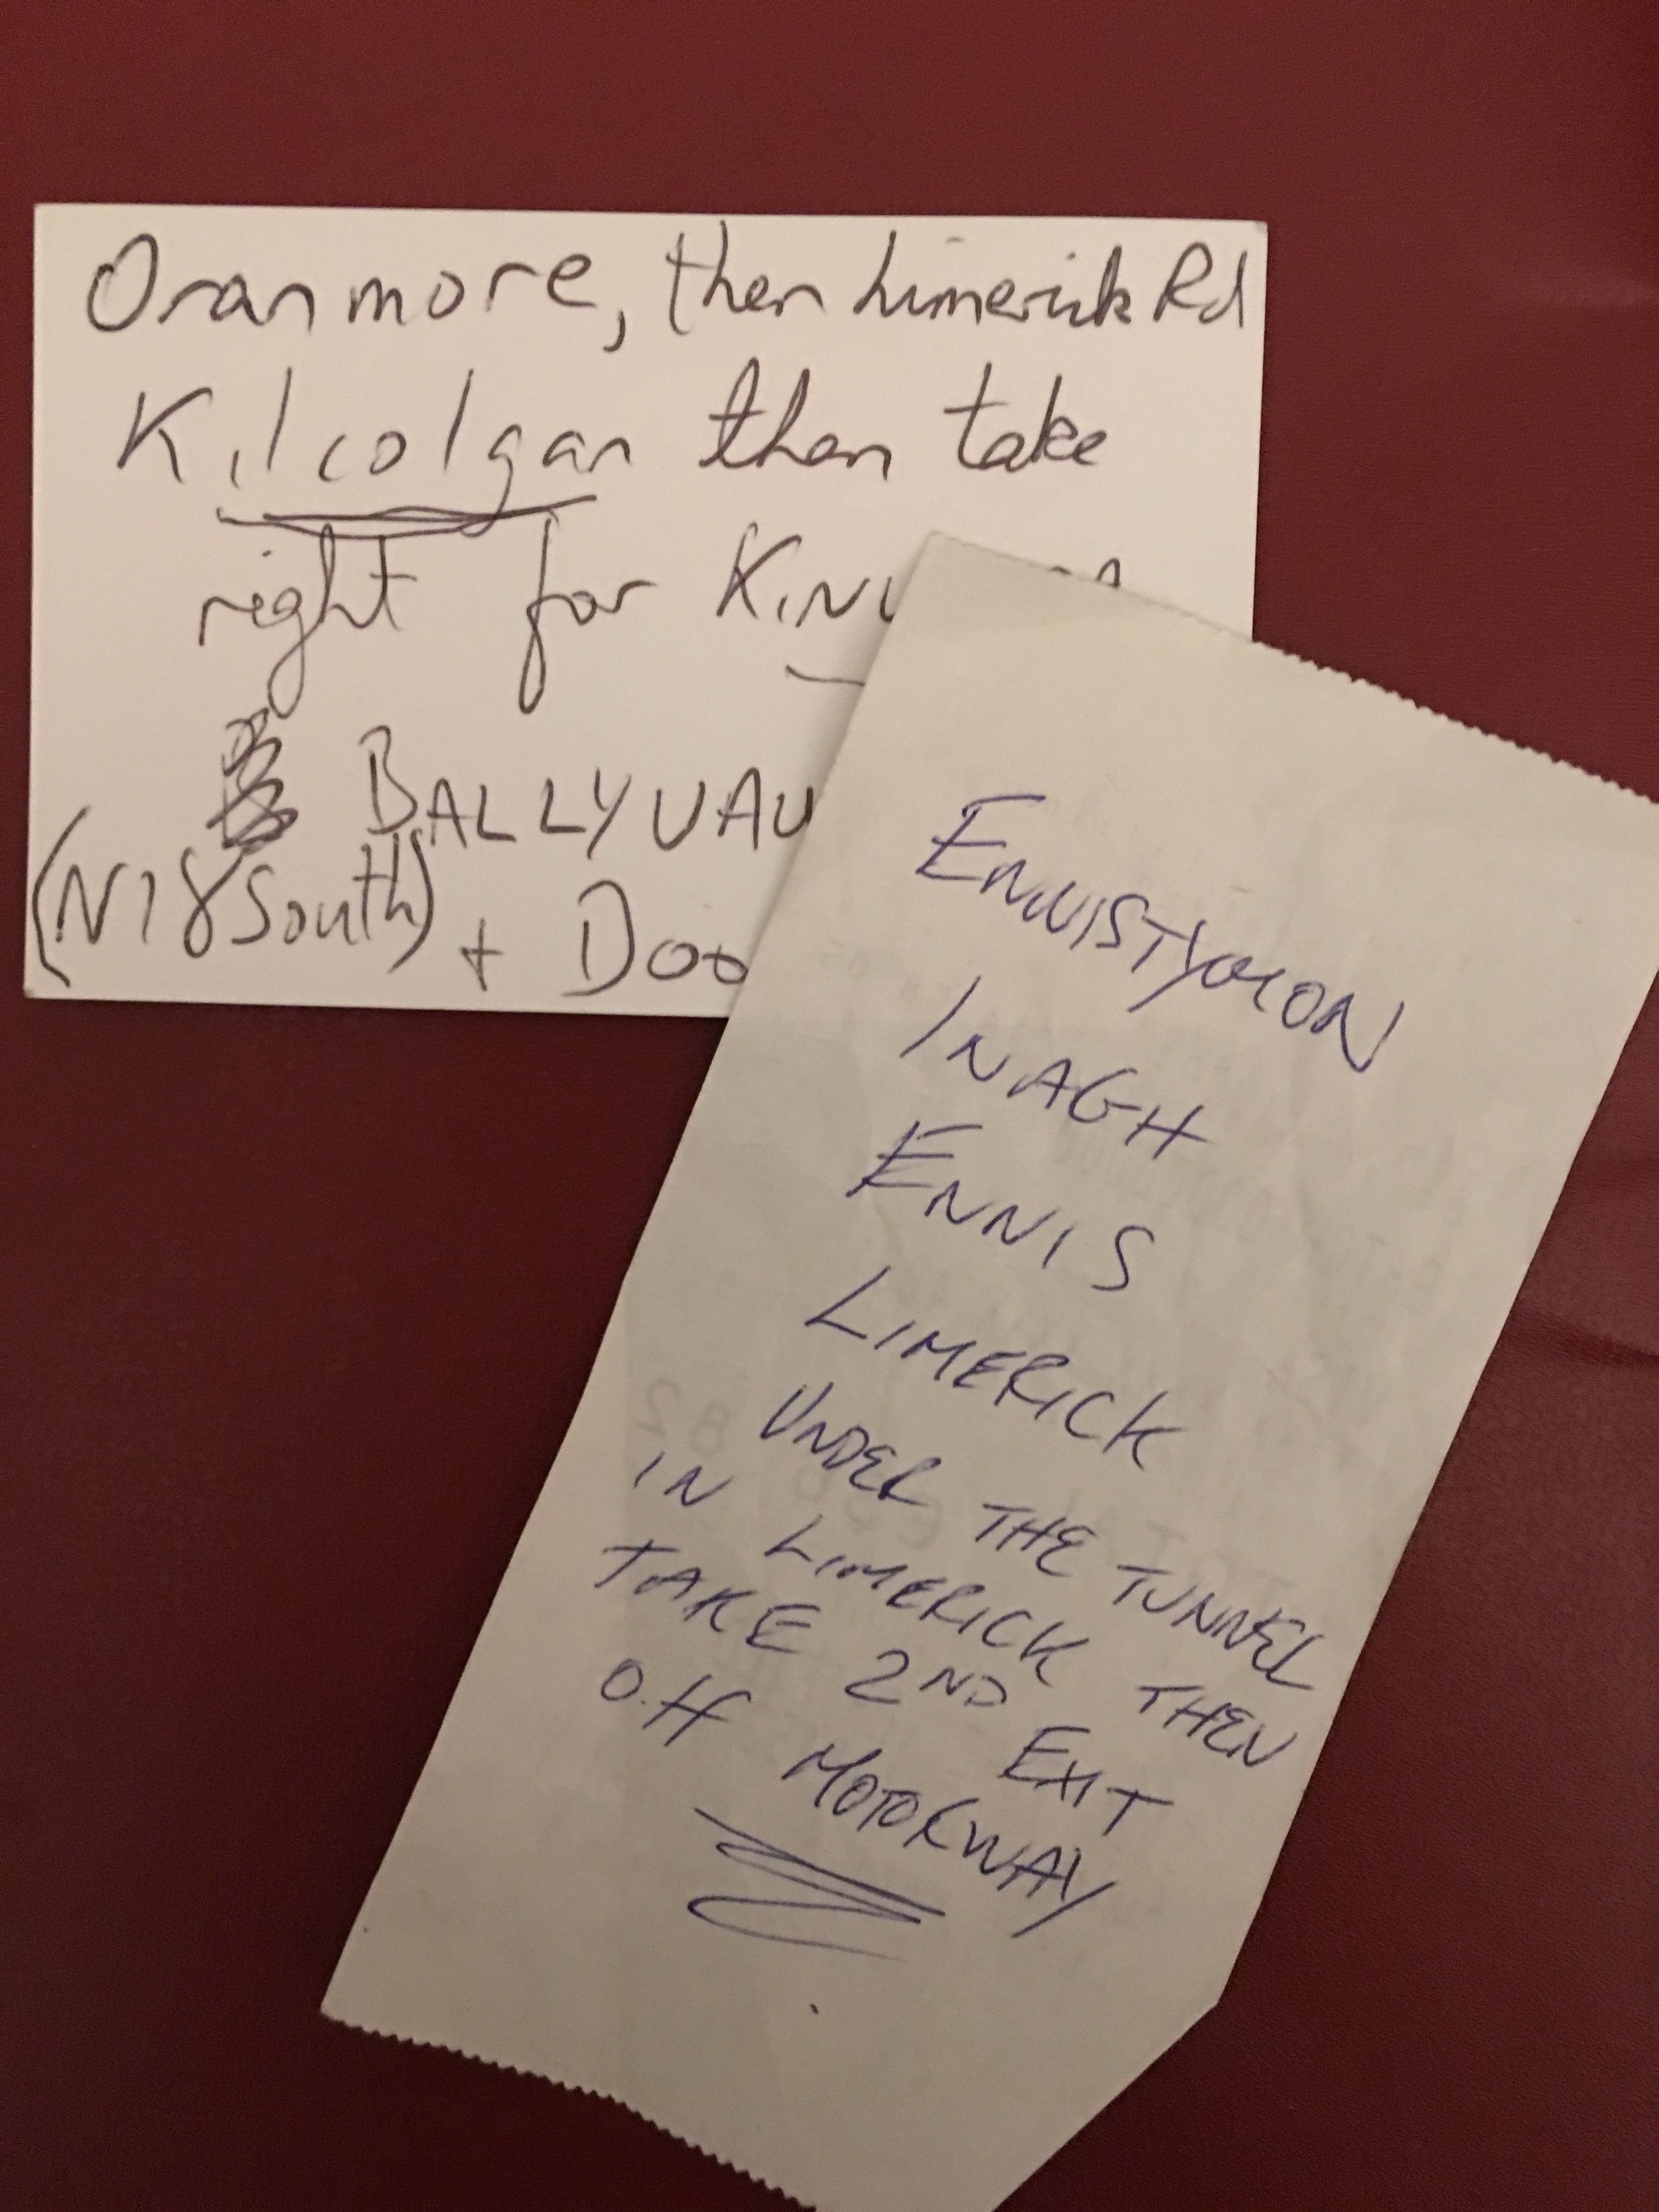 Oranmore, then Limerick Rd
Kilcolgan then take
right for
(N18 South) +
ENNISTYMON
INAGH
ENNIS
LIMERICK
UNDER THE TUNNEL
IN LIMERICK THEN
TAKE 2ND EXIT
Off MOTORWAY